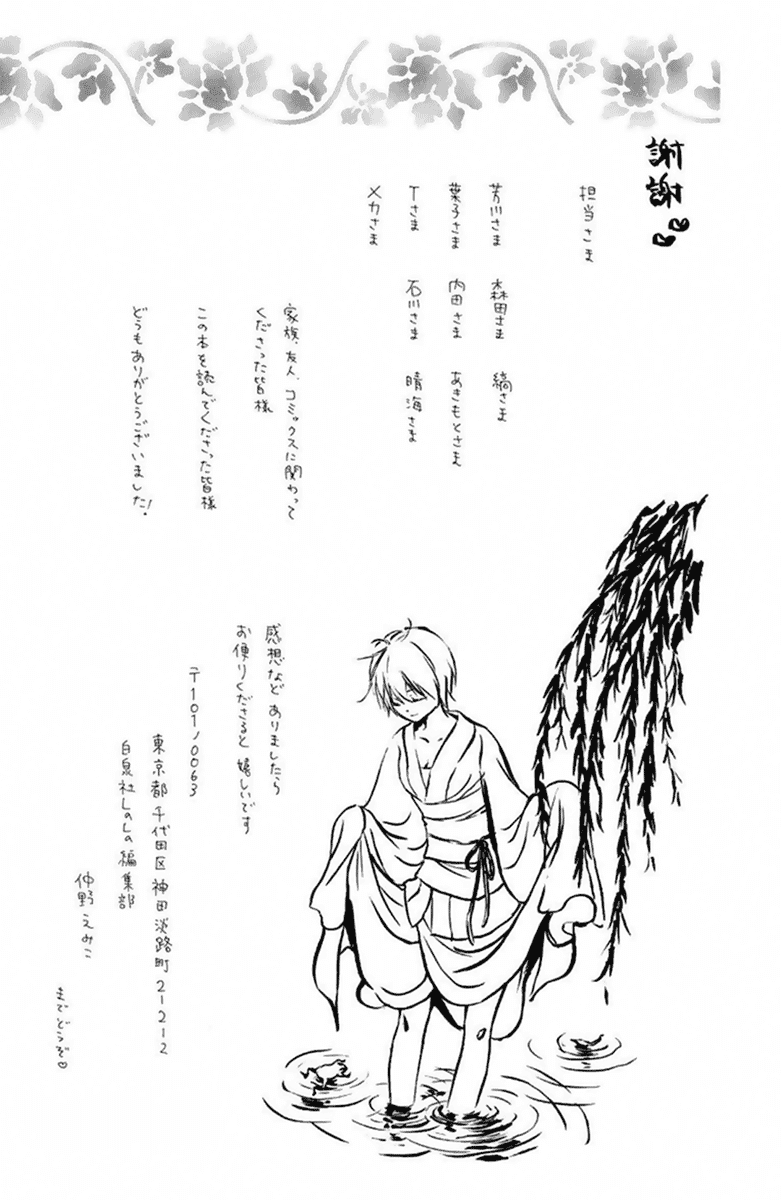 謝謝
担当さま
芳川さま 森田さま 縞さま
葉子さま 内田さま あきもとさま
Tさま 石川さま 晴海さま
メカさま
家族、友人、コミックスに関わって
くださった皆様
この本を読んでくださった皆様
どうもありがとうございました!
感想など ありましたら
お便りくださると 嬉しいです
〒101-0063
東京都千代田区神田淡路町2-2-2
白泉社LaLa編集部
仲野えみこ
までどうぞ♡